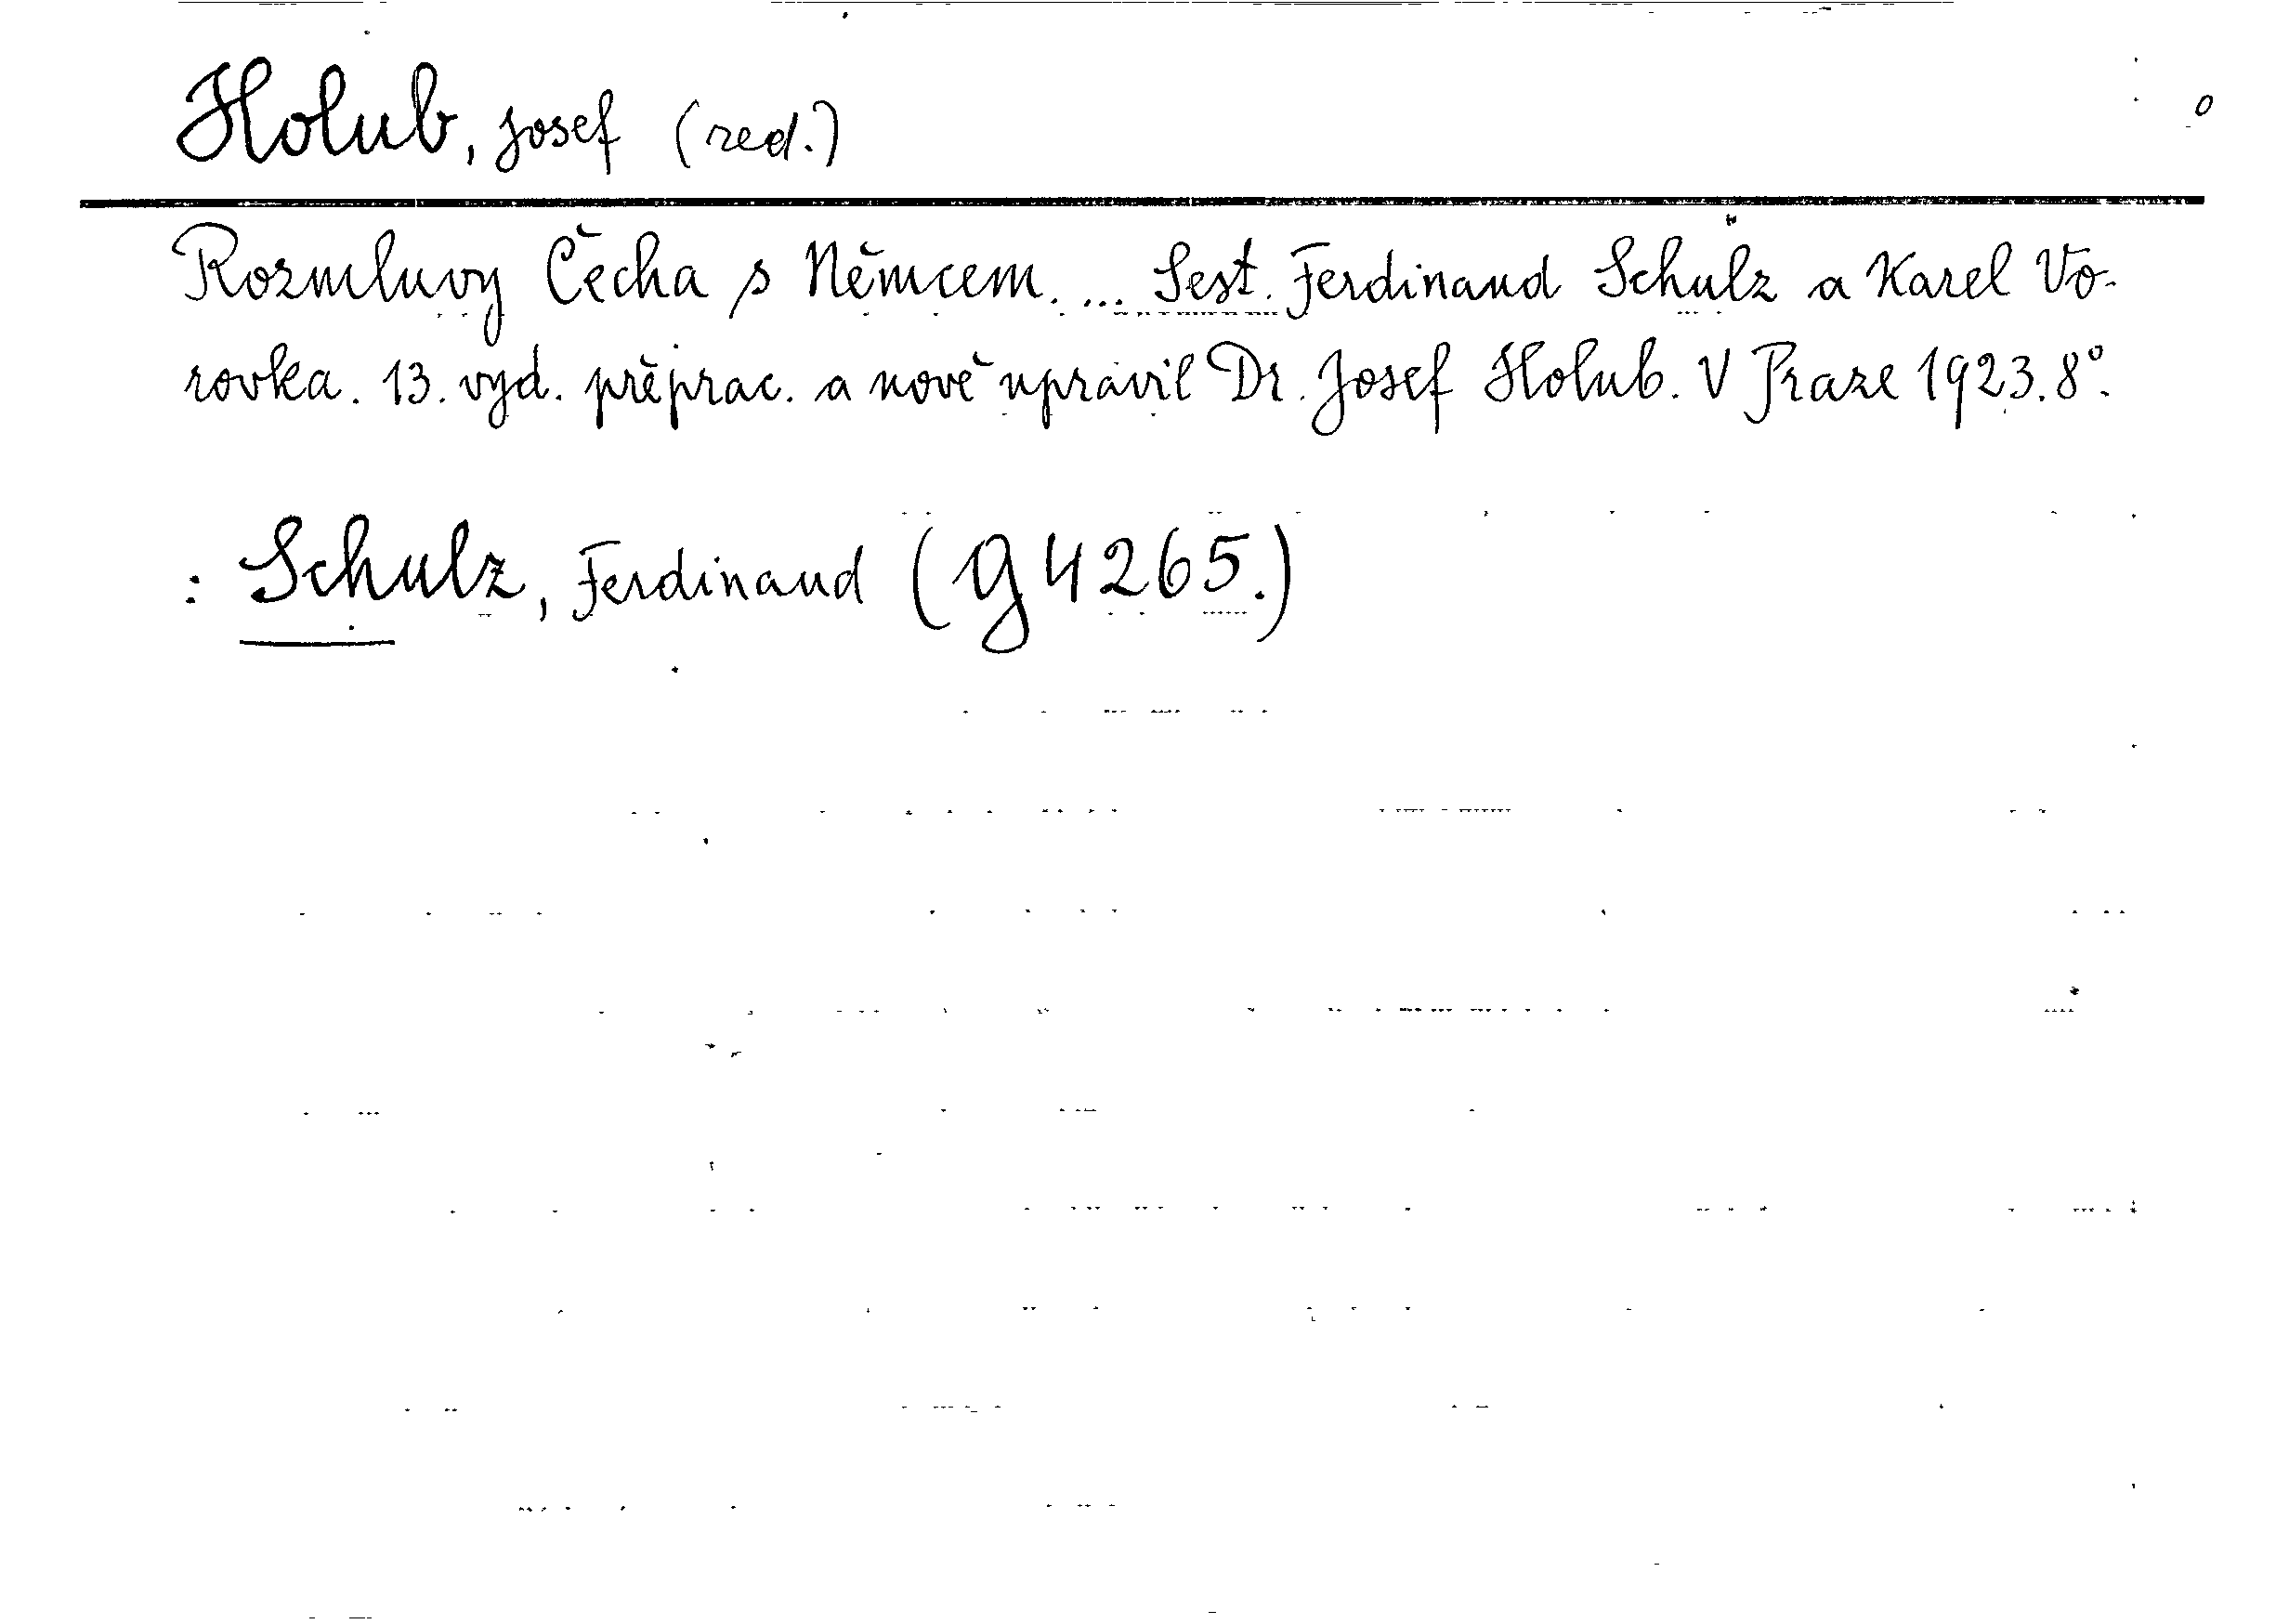 Holub, Josef (red.)
0
Rozmluvy Čecha s Němcem. ... Sest. Ferdinand Schulz a Karel Vo-
rovka. 13. vyd. přeprac. a nově upravil Dr. Josef Holub. V Praze 1923. 8°.
: Schulz, Ferdinand (g 4265.)